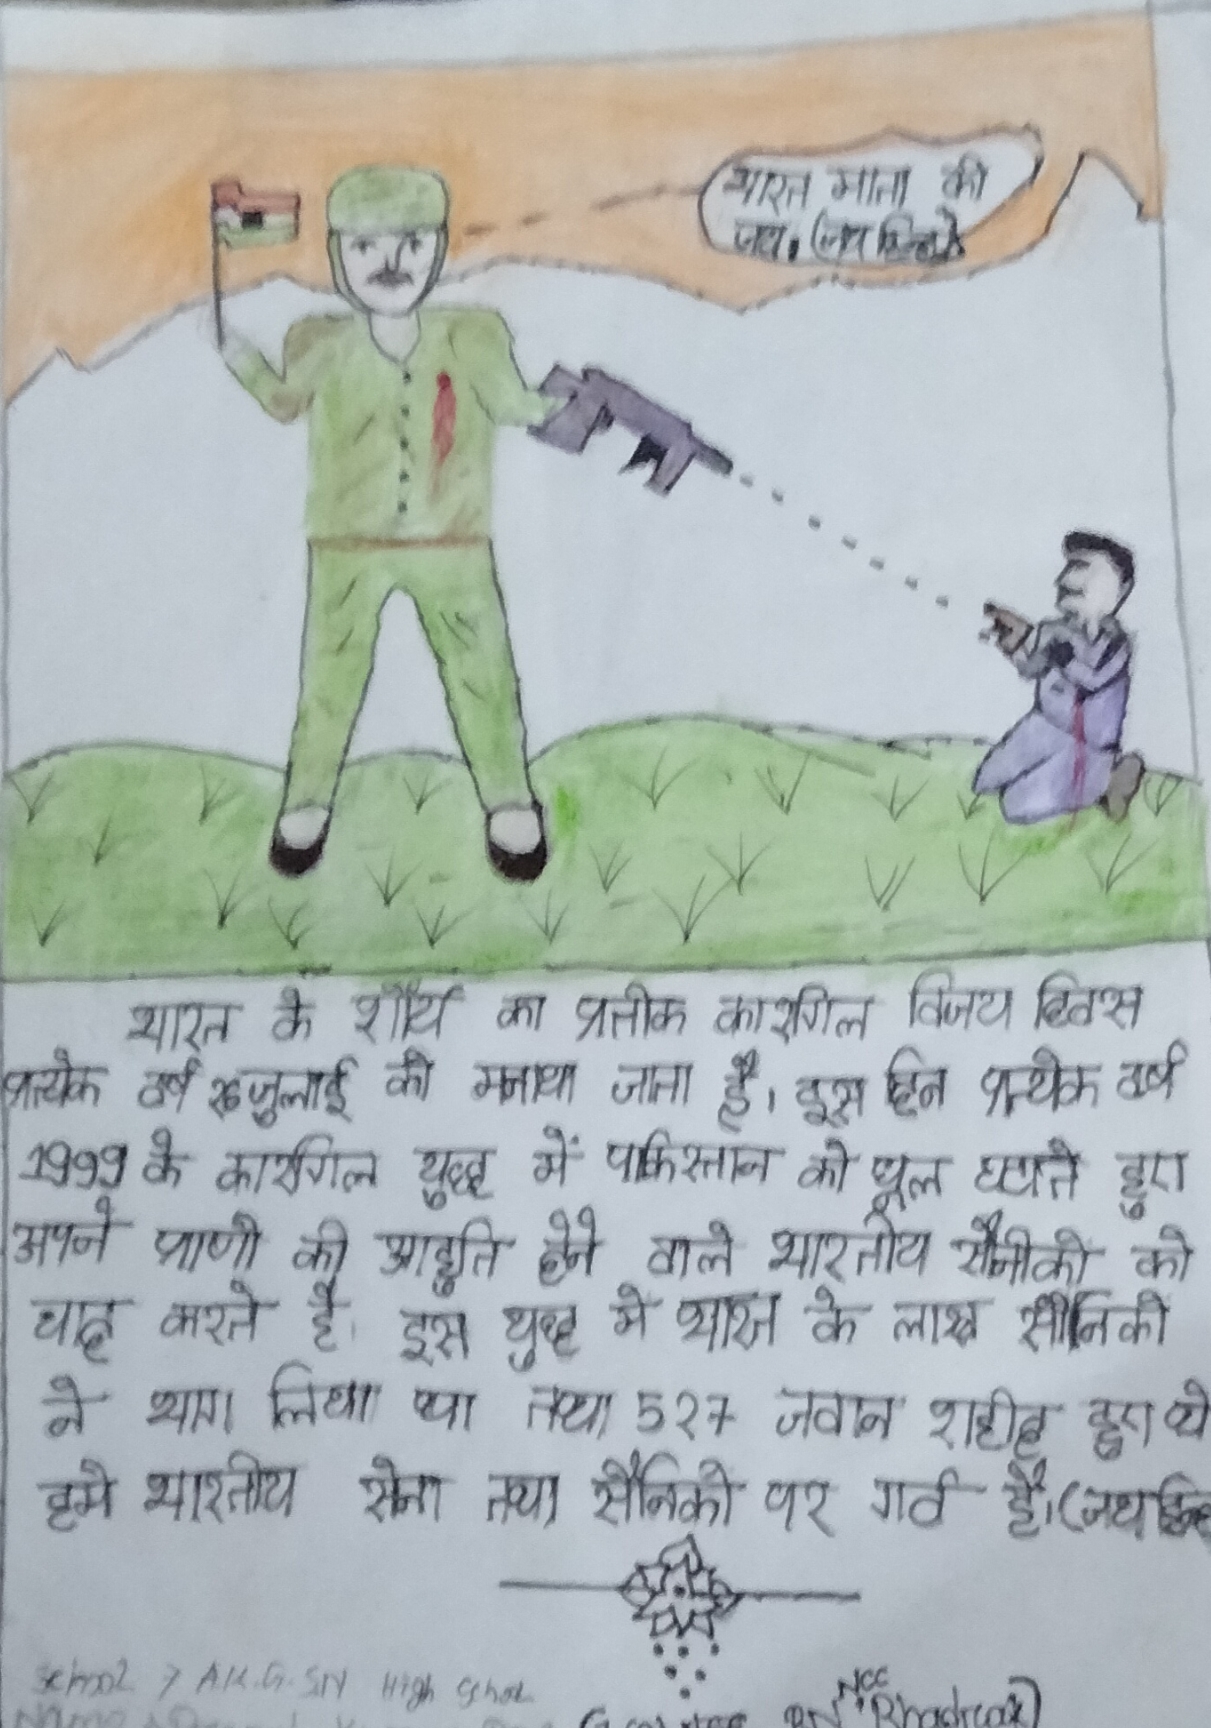 भारत माता की
जय। (जय हिन्द)
भारत के शौर्य का प्रतीक कारगिल विजय दिवस
प्रत्येक वर्ष 26 जुलाई को मनाया जाता है। इस दिन प्रत्येक वर्ष
1999 के कारगिल युद्ध में पाकिस्तान को धूल चटाते हुए
अपने प्राणो की आहुति देने वाले भारतीय सैनीको को
याद करते है। इस युद्ध मे भारत के लाख सैनिको
ने भाग लिया था तथा 527 जवान शहीद हुए थे
हमे भारतीय सेना तथा सैनिको पर गर्व है। (जय हिन्द
School → A.K.G.S.N High School
NCC